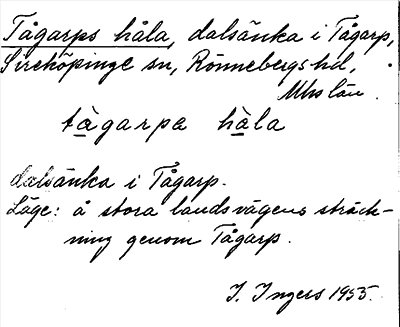 Tågarps håla, dalsänka i Tågarp,
Sireköpinge sn, Rönnebergs hd,
Mhs län.
tàgarpa hàla
dalsänka i Tågarp.
Läge: å stora landsvägens sträck-
ning genom Tågarp.
I. Ingers 1955.